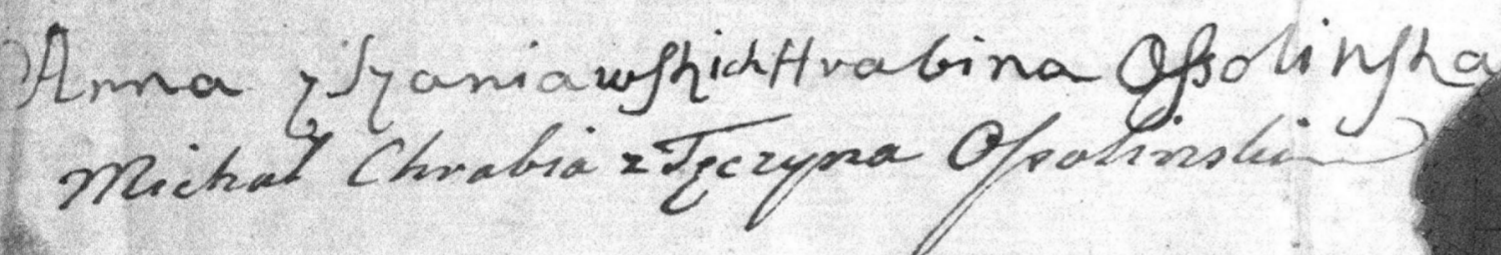 Anna z Szaniawskich Hrabina Ossolinska
Michał Chrabia z Tęczyna Ossolinski